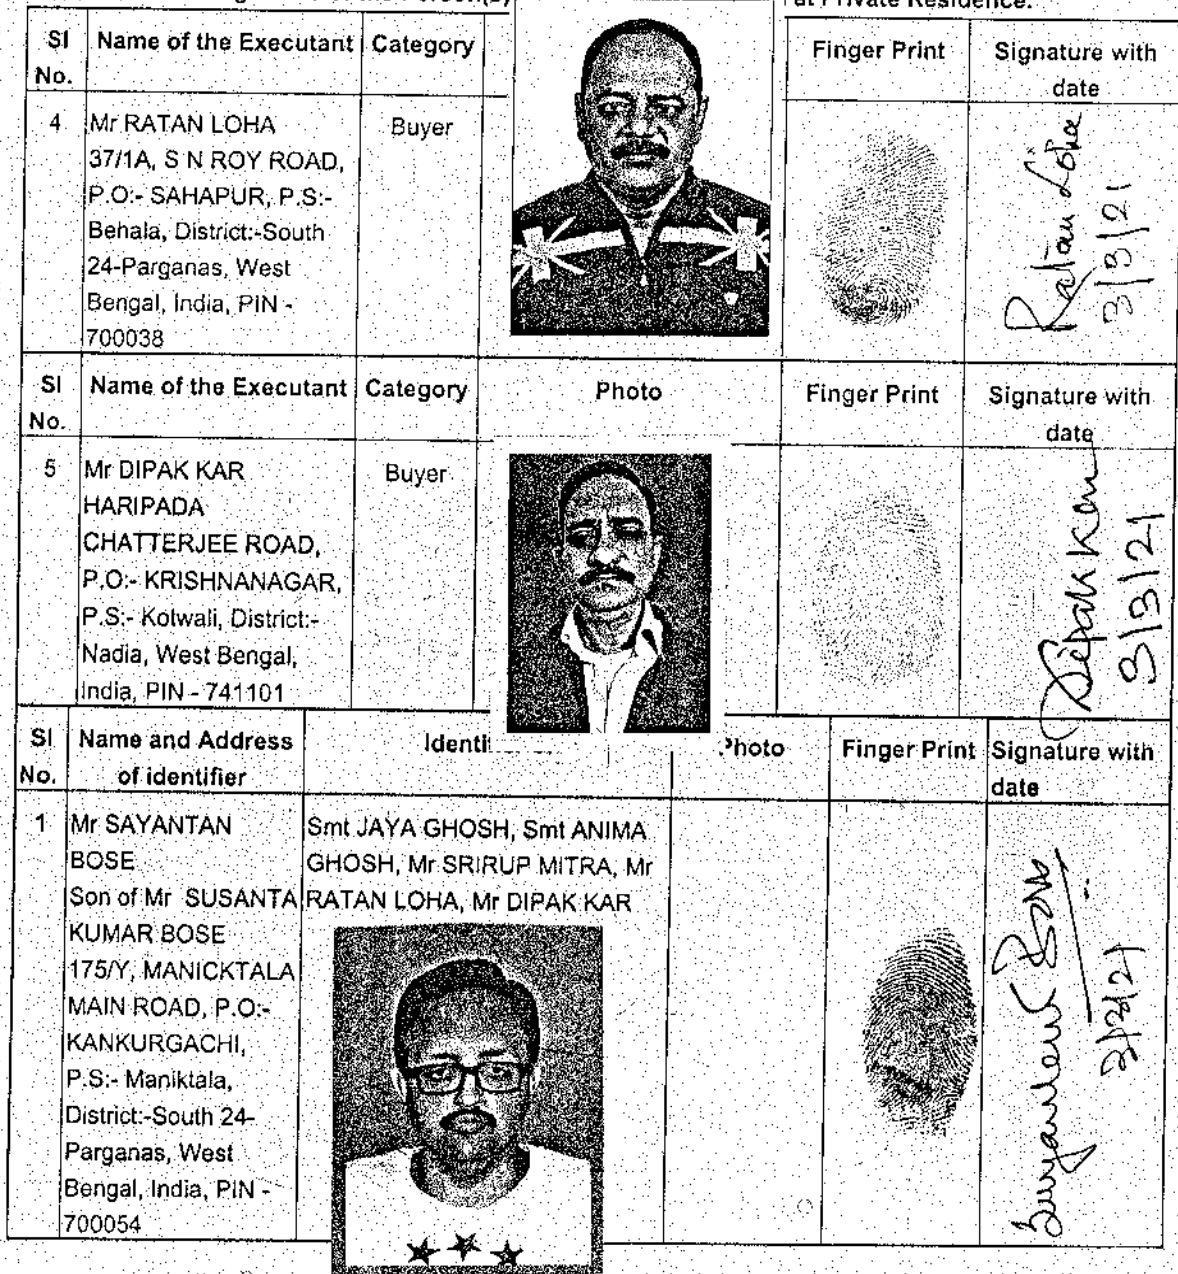 at Private Residence.
Sl No. Name of the Executant Category Finger Print Signature with date
4 Mr RATAN LOHA Buyer
37/1A, S N ROY ROAD,
P.O:- SAHAPUR, P.S:-
Behala, District:-South
24-Parganas, West
Bengal, India, PIN -
700038
Ratan Loha
3/3/21
Sl No. Name of the Executant Category Photo Finger Print Signature with date
5 Mr DIPAK KAR Buyer
HARIPADA
CHATTERJEE ROAD,
P.O:- KRISHNANAGAR,
P.S:- Kotwali, District:-
Nadia, West Bengal,
India, PIN - 741101
Dipak Kar
3/3/21
Sl No. Name and Address of identifier Identi Photo Finger Print Signature with date
1 Mr SAYANTAN
BOSE
Son of Mr SUSANTA
KUMAR BOSE
175/Y, MANICKTALA
MAIN ROAD, P.O:-
KANKURGACHI,
P.S:- Maniktala,
District:-South 24-
Parganas, West
Bengal, India, PIN -
700054
Smt JAYA GHOSH, Smt ANIMA
GHOSH, Mr SRIRUP MITRA, Mr
RATAN LOHA, Mr DIPAK KAR
Sayantan Bose